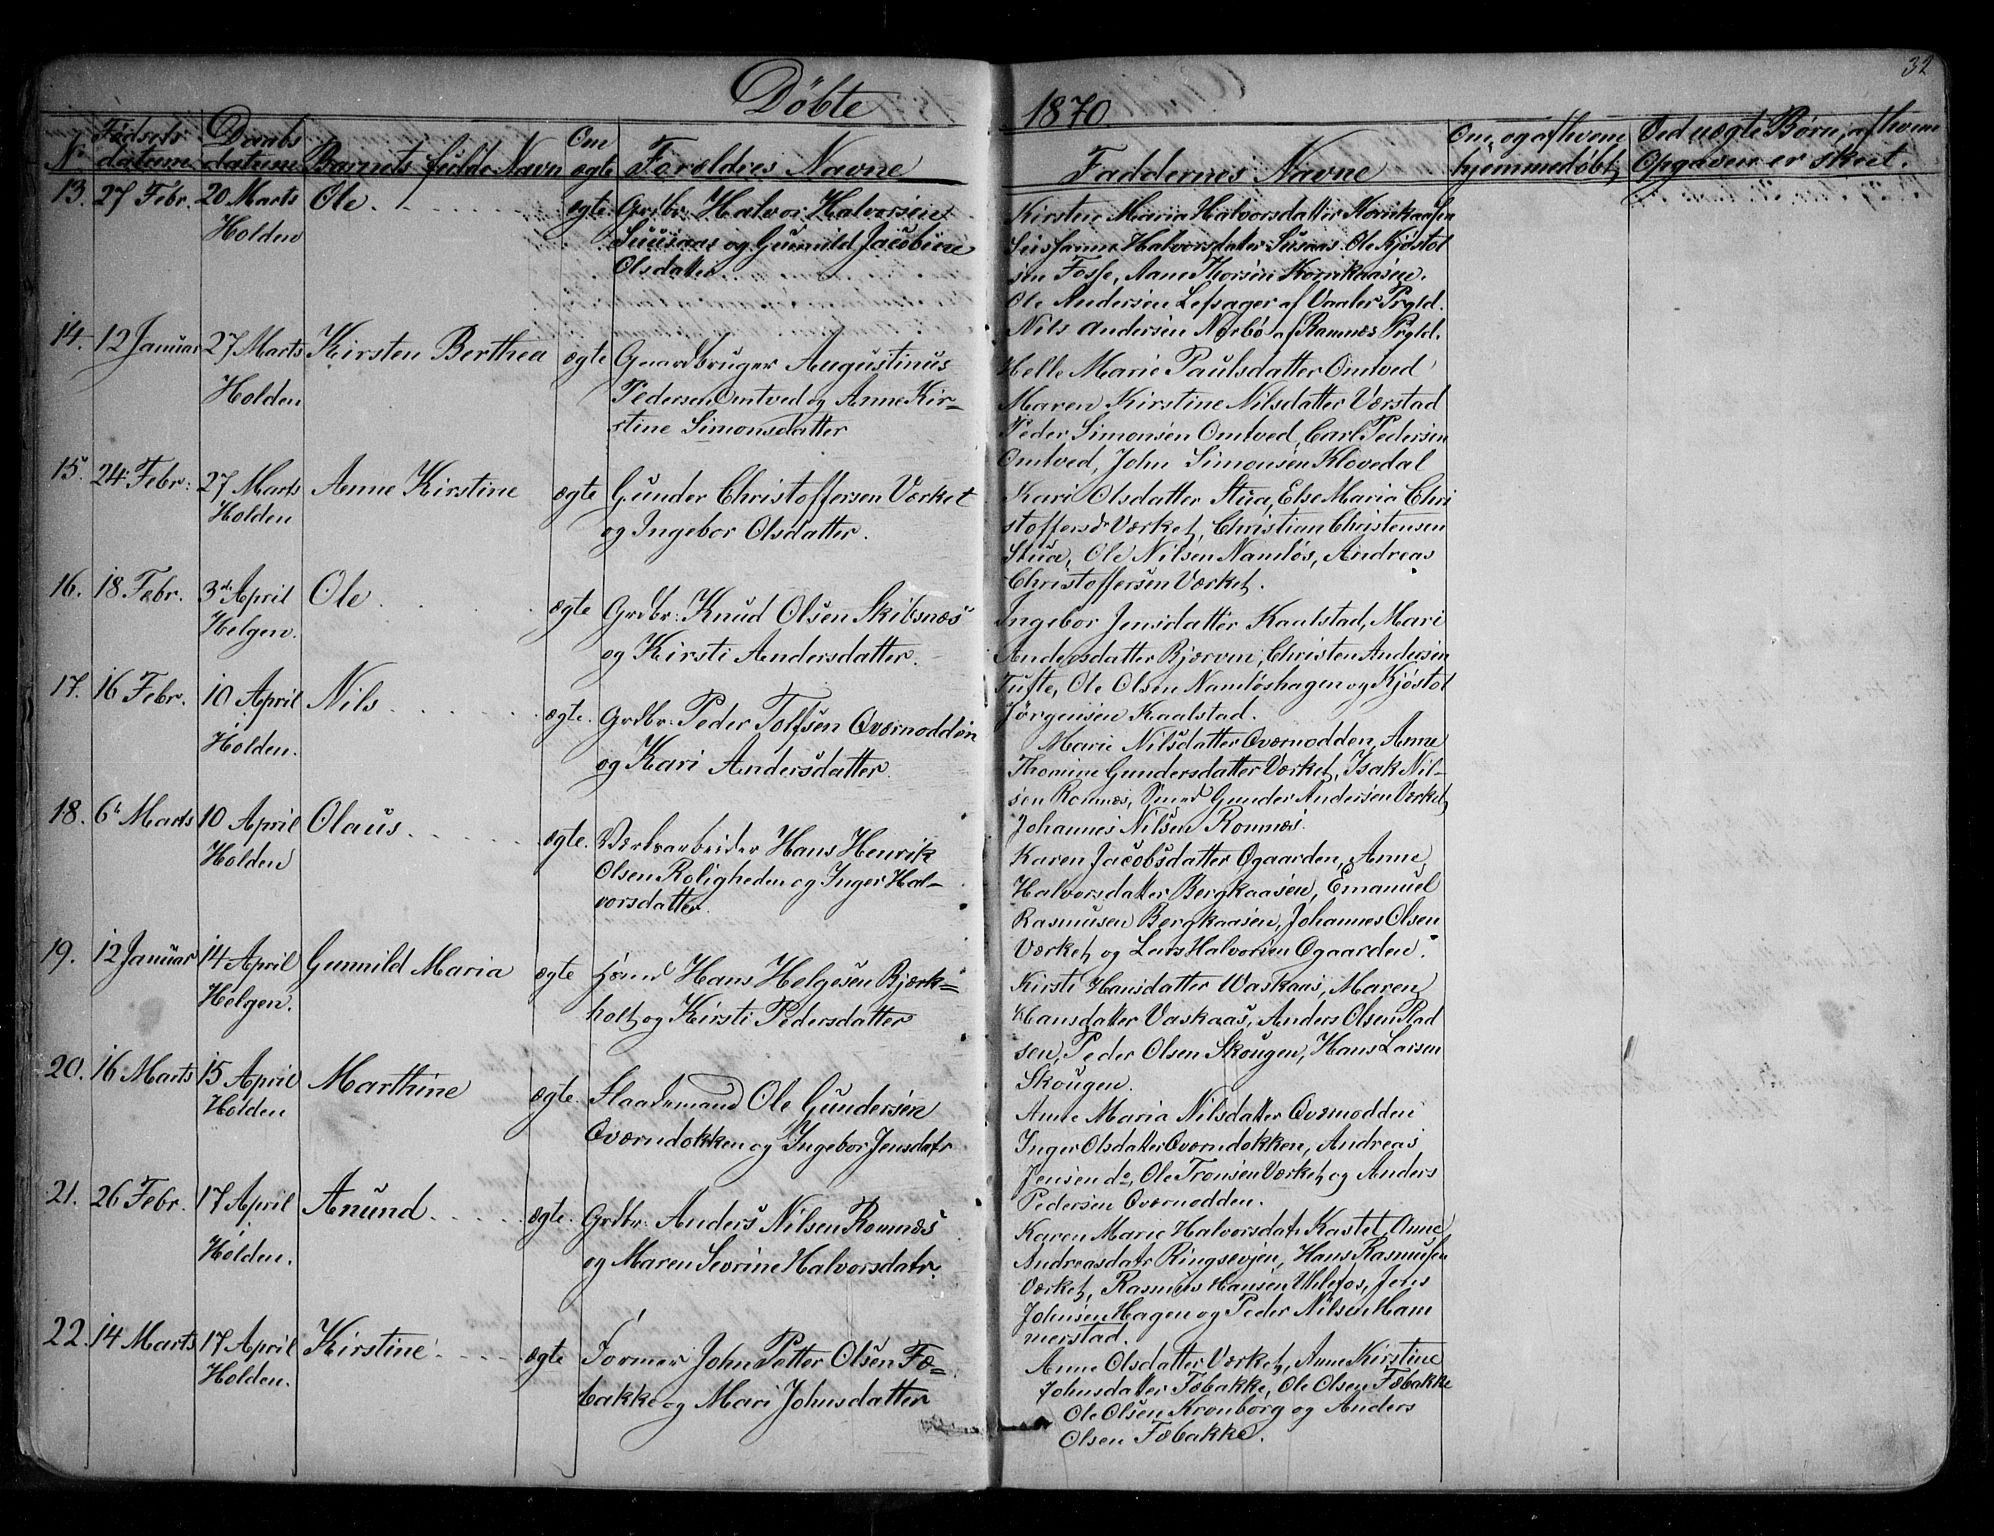 32
Døbte
1870.
No Fødsels datum Daabs datum Barnets fulde Navn Om ægte Foreldres Navne
Faddernes Navne Om, og af hvem hjemmedøbt Ved uægte Børn, af hvem Opgaven er skeet.
13. 27 Febr. 20 Marts Holden Ole. ægte Grdbr. Halvor Halvorsen
Suusaas og Gunnild Jacobine
Olsdatter
Kirsten Maria Halvorsdatter Kornkaasen
Susanne Halvorsdatter Susaas, Ole Kjøstol
sen Fosse, Aane Thorsen Kornkaasen.
Ole Andersen Lefsager af Vaaler Prgld.
Nils Andersen Nørbø af Ramnæs Prgld.
14. 12 Januar 27 Marts Holden Kirsten Berthea ægte Gaardbruger Augustinus
Pedersen Omtved og Anne Kir=
stine Simonsdatter
Helle Marie Paulsdatter Omtved
Maren Kirstine Nilsdatter Værstad
Peder Simonsen Omtved, Carl Pedersen
Omtved, John Simonsen Klovedal
15. 24 Febr: 27 Marts Holden Anne Kirstine ægte Gunder Christoffersen Værket
og Ingebor Olsdatter.
Kari Olsdatter Stua, Else Maria Chri
stoffersdr Værket, Christian Christensen
Stua, Ole Nilsen Namløs, Andreas
Christoffersen Værket.
16. 18 Febr. 3die April Helgen. Ole ægte Grdbr: Knud Olsen Skibsnæs
og Kirsti Andersdatter.
Ingebor Jensdatter Kaalstad, Mari
Andersdatter Bjærven, Christen Andersen
Tufte, Ole Olsen Namløshagen og Kjøstol
Jørgensen Kaalstad.
17. 16 Febr. 10 April Holden. Nils ægte. Grdbr: Peder Tolfsen Overnodden
og Kari Andersdatter.
Marie Nilsdatter Overnodden, Anne
Thomine Gundersdatter Værket, Isak Nil=
sen Romnæs, Smed Gunder Andersen Værket
Johannes Nilsen Romnæs.
18. 6te Marts 10 April Holden Olaus ægte. Værksarbeider Hans Henrik
Olsen Roligheden og Inger Hal=
vorsdatter.
Karen Jacobsdatter Øgaarden, Anne
Halvorsdatter Bergkaasen, Emanuel
Rasmusen Bergkaasen, Johannes Olsen
Værket og Lars Halvorsen Øgaarden.
19. 12 Januar 14 April Helgen. Gunnild Maria ægte Hmnd Hans Helgesen Bjærk=
holt og Kirsti Pedersdatter
Kirsti Hansdatter Waskaas, Maren
Hansdatter Vaskaas, Anders Olsen Rad
sen, Peder Olsen Skougen, Hans Larsen
Skougen.
20. 16 Marts 15 April Holden Marthine ægte. Flaademand Ole Gundersen
Overndokken og Ingebor Jensdatr
Anne Maria Nilsdatter Overnodden
Inger Olsdatter Overndokken, Andreas
Jensen do, Ole Tronsen Værket og Anders
Pedersen Overnodden.
21. 26 Febr. 17 April Holden. Anund ægte. Grdbr: Anders Nilsen Romnæs
og Maren Sevrine Halvorsdatr.
Karen Marie Halvorsdatr Kastet, Anne
Andreasdatr Ringsevjen, Hans Rasmusen
Værket, Rasmus Hansen Ulefos, Jens
Johnsen Hagen og Peder Nilsen Ham
merstad.
22. 14 Marts 17 April Holden. Kirstine ægte Former John Petter Olsen Fæ=
bakke og Mari Johnsdatter
Anne Olsdatter Værket, Anne Kirstine
Johnsdatter Fæbakke, Ole Olsen Fæbakke
Ole Olsen Kronborg og Anders
Olsen Fæbakke.